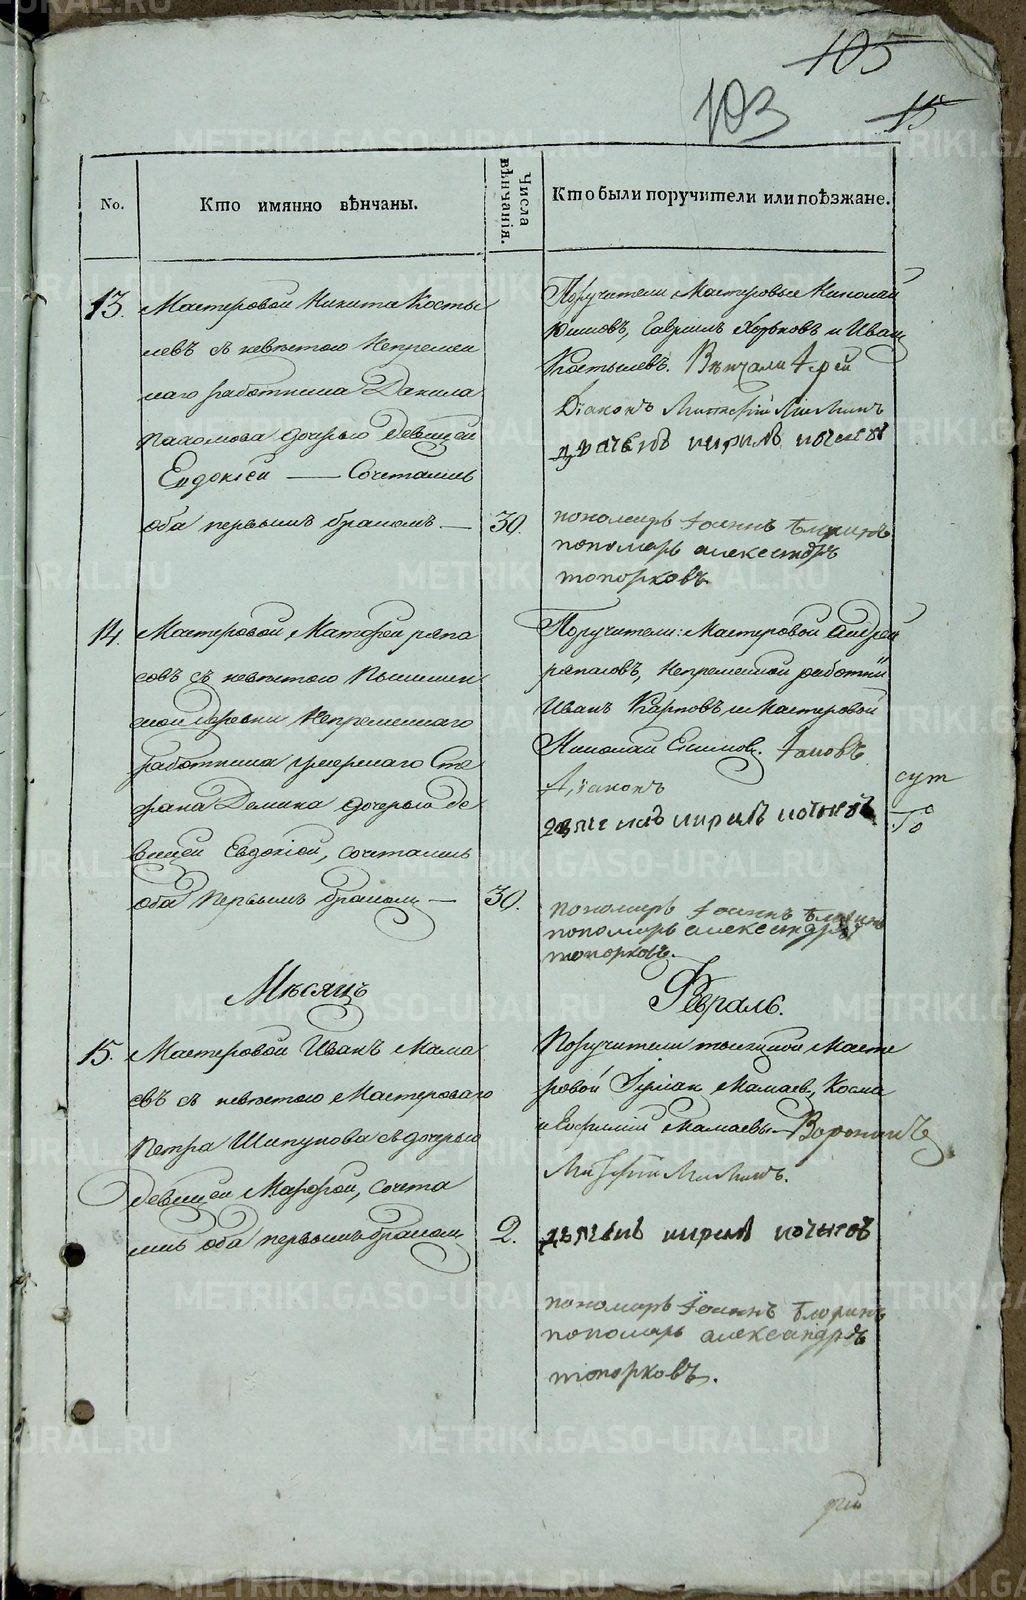 105
103
15
No.
Кто имянно вѣнчаны.
Числа вѣнчанія.
Кто были поручители или поѣзжане.
13.
Мастеровой Никита Косты
левъ съ невѣстою Непремен
наго работника Данила
Пахомова дочерью девицей
Евдокіей — Сочетались
оба первымъ бракомъ. —
30.
Поручители Мастеровые Николай
Гаврилъ Хорьковъ и Иванъ
Костылевъ. Вѣнчали
Діаконъ
дьячекъ кирилъ
пономарь Іоаннъ
пономарь александръ
топорковъ.
14.
Мастеровой Матфей ряпа
совъ съ невѣстою Пышмин
ской деревни Непременнаго
работника Сте
фана Демина дочерью де
вицей Евдокіей, сочетались
оба первымъ бракомъ —
30.
Поручители: Мастеровой Андрей
ряпасовъ, Непременной работникъ
Иванъ Карповъ и Мастеровой
Николай Екимовъ.
Діаконъ
кирилъ
пономарь Іоаннъ
пономарь александръ
топорковъ.
сут
Мѣсяцъ
Февраль.
15.
Мастеровой Иванъ Мама
евъ съ невѣстою Мастероваго
Петра Шипунова съ дочерью
девицей Марфой, сочета
лись оба первымъ бракомъ
2.
Поручители тысяцкой Масте
ровой Мамаев, Косма
и Мамаевы
дьячекъ кирилъ
пономарь Іоаннъ
пономарь александръ
топорковъ.
METRIKI.GASO-URAL.RU